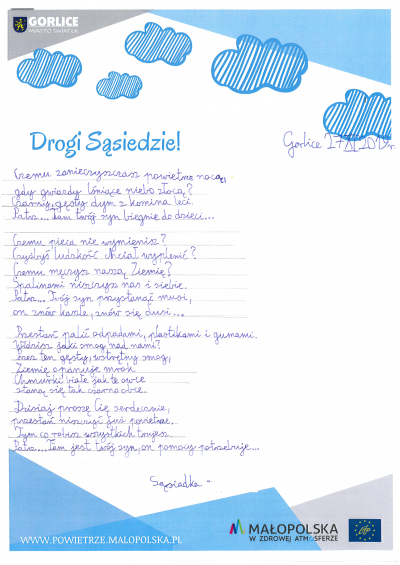 GORLICE
MIASTO ŚWIATŁA
Drogi Sąsiedzie!
Gorlice 27 XI 2019r.
Czemu zanieczyszczasz powietrze nocą,
gdy gwiazdy lśniące niebo złocą?
Czarny, gęsty dym z komina leci.
Patrz... Tam twój syn biegnie do dzieci...
Czemu pieca nie wymienisz?
Czyżbyś ludzkość chciał wyplenić?
Czemu męczysz naszą Ziemię?
Spalinami niszczysz nas i siebie.
Patrz... Twój syn przystanąć musi,
on znów kaszle, znów się dusi...
Przestań palić odpadami, plastikami i gumami.
Widzisz jaki smog nad nami?
Przez ten gęsty, wstrętny smog,
Ziemię opanuje mrok.
Chmurki białe jak te owce
staną się tak czarno obce.
Dzisiaj proszę Cię serdecznie,
przestań niszczyć już powietrze.
Tym co robisz wszystkich trujesz.
Patrz... Tam jest twój syn, on pomocy potrzebuje...
Sąsiadka
WWW.POWIETRZE.MALOPOLSKA.PL
MAŁOPOLSKA
W ZDROWEJ ATMOSFERZE
life